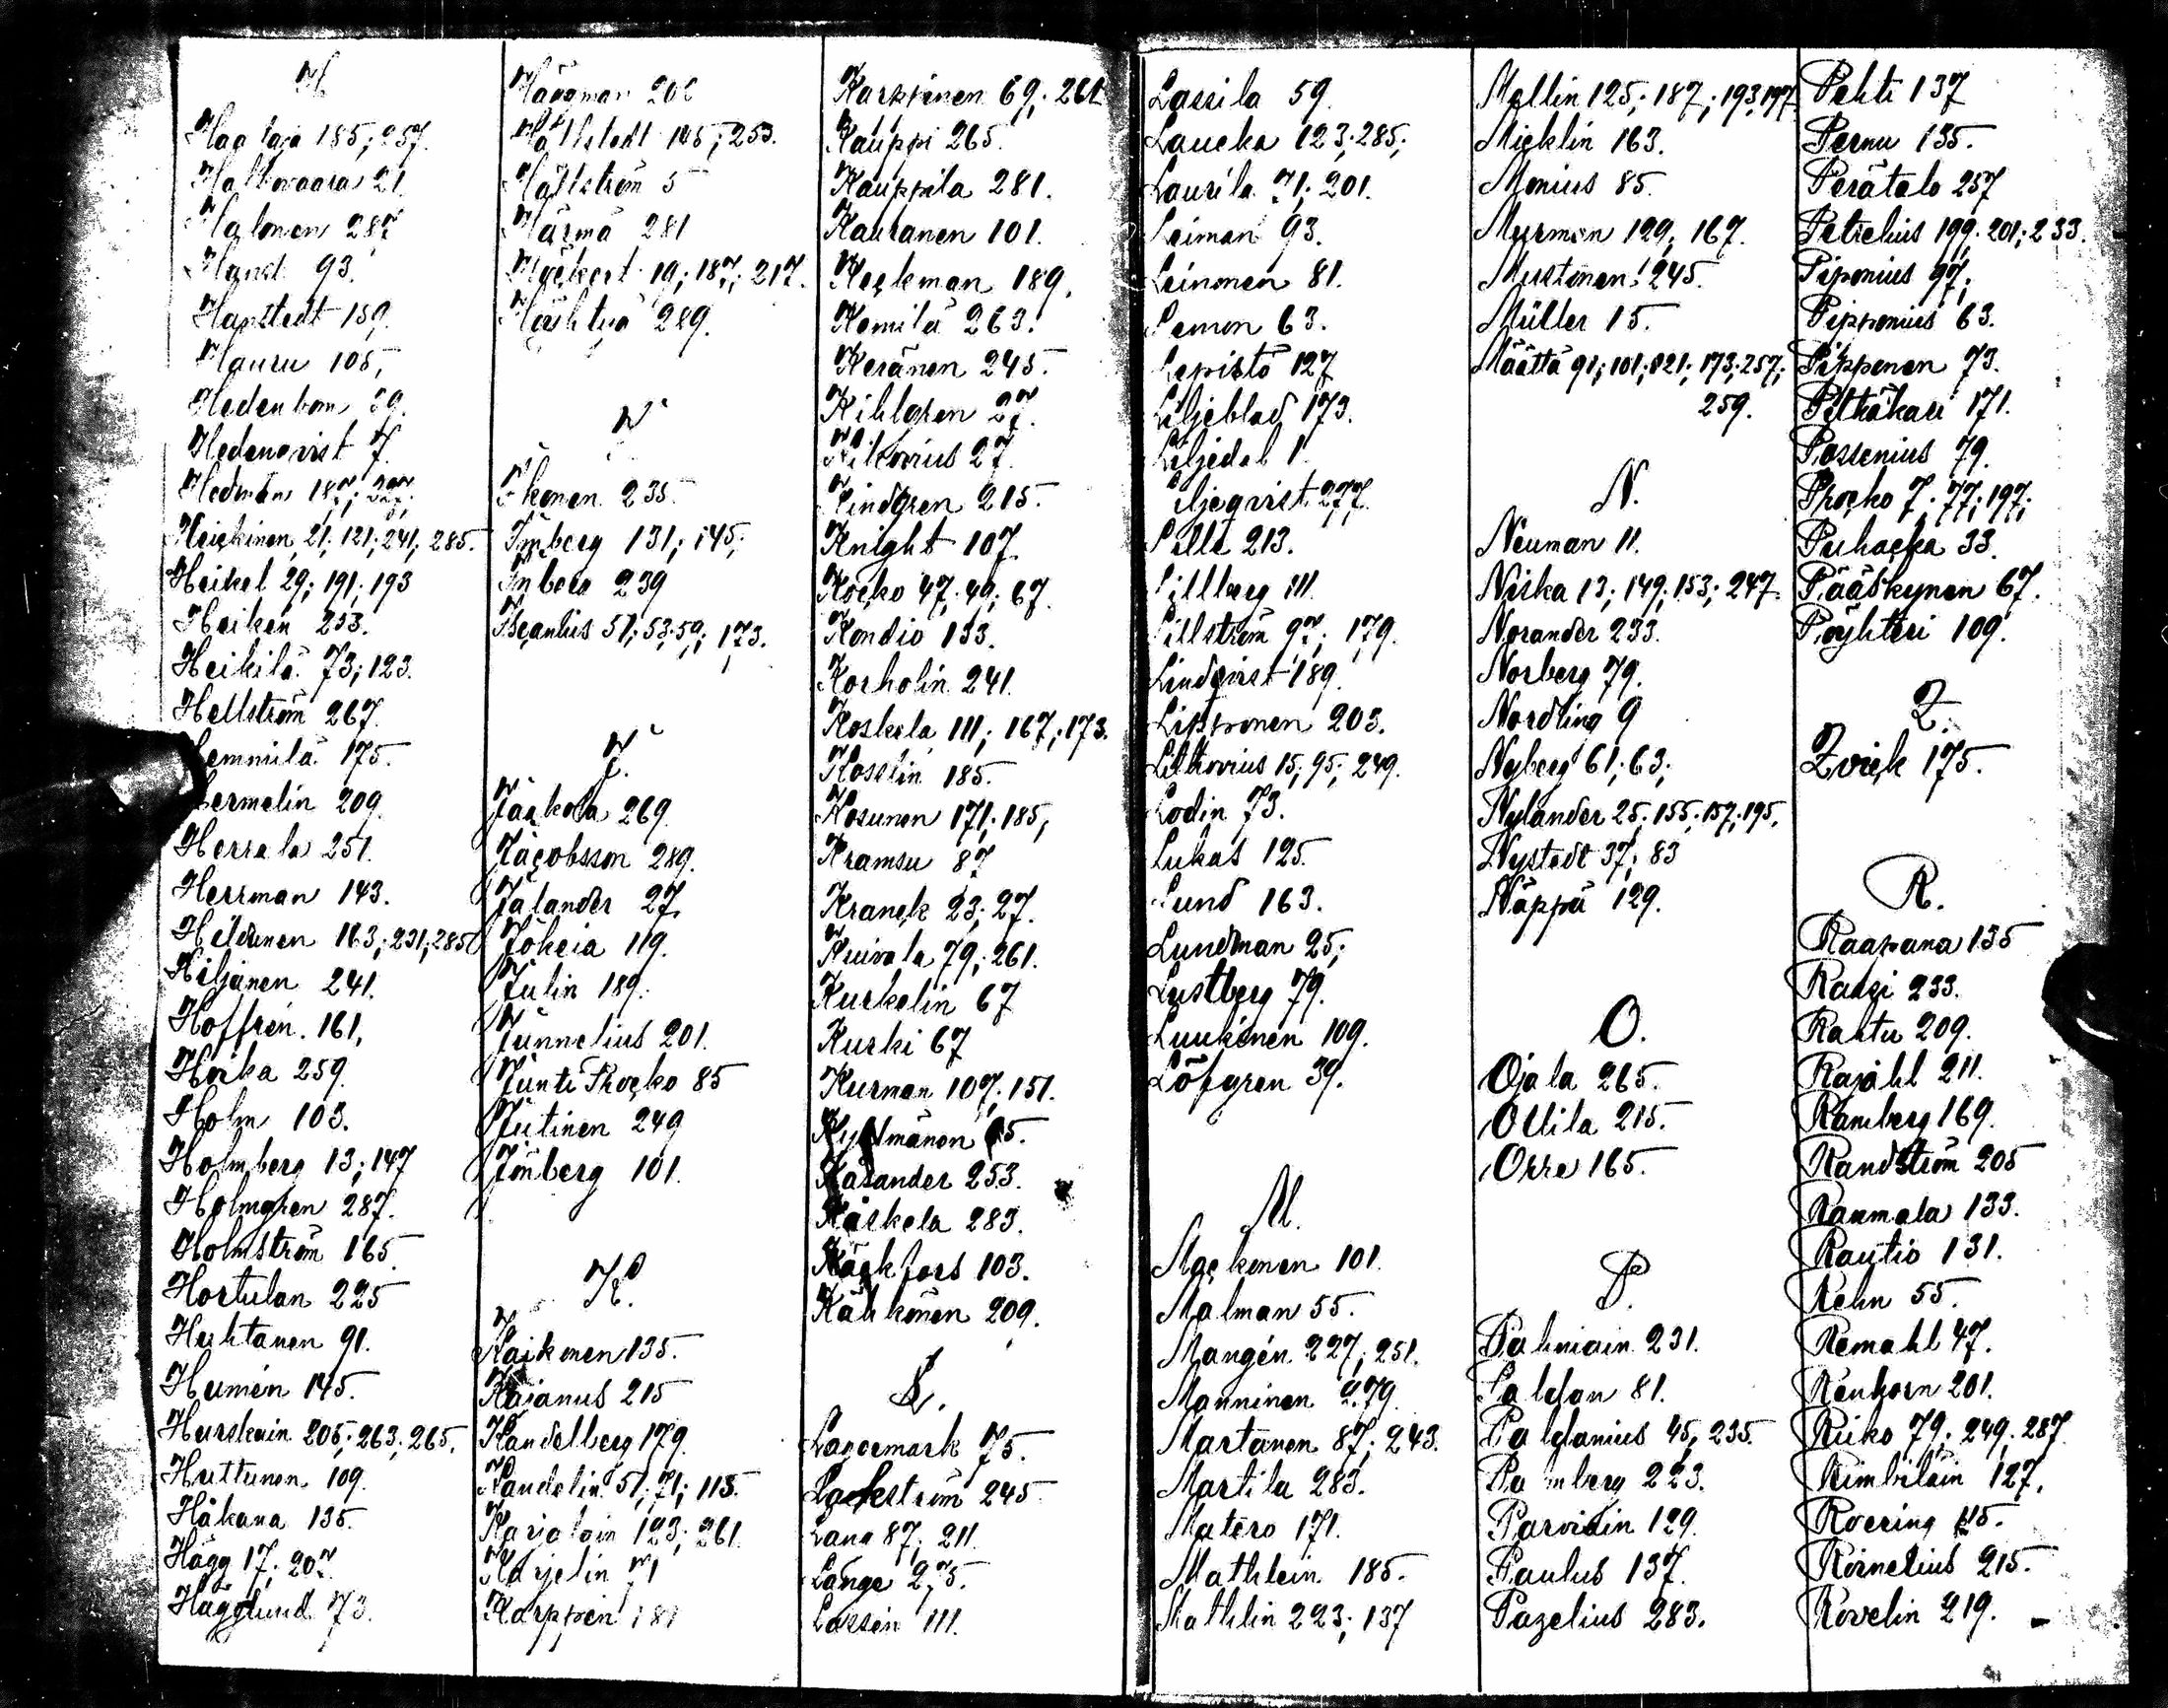 H
Haataja 185; 257.
Halkovaara 21
Halonen 287
Hand 93.
Hanstedt 189.
Hauru 105,
Hedenbom 39.
Hedenqvist 7.
Hedman 187; 227.
Heickinen 21; 121; 241; 285.
Heikel 29; 191; 193
Heiken 253.
Heikilä 73; 123.
Hellström 267.
Hemmilä 175.
Hermelin 209.
Herrala 251.
Herrman 143.
Hildunen 163; 231; 285
Hiljanen 241.
Hoffrén 161,
Hoika 259.
Holm 103.
Holmberg 13; 147
Holmgren 287.
Holmström 165
Hortulan 225
Huhtanen 91.
Humén 145.
Hurskain 205; 263; 265.
Huttunen 109.
Håkana 135.
Hägg 17; 207
Hägglund 73.
Häggman 202
Hällstedt 145; 253.
Hällström 5
Härmä 281
Höckert 19; 187; 217.
Höyhtyä 289.
I
Ikonen 235.
Imberg 131; 145;
Inberg 239
Isceanius 51; 53; 59; 173.
J.
Jackola 269
Jacobsson 289.
Jalander 27.
Jokeia 119.
Julin 189.
Junnelius 201.
Junti Thocko 85
Jutinen 249
Jönberg 101.
K.
Kaikonen 135.
Kajanus 215
Kandelberg 179.
Kandelin 51; 71; 115.
Karjalain 123; 261
Karjelin 71
Karppén 181
Karppinen 69; 261
Kauppi 265.
Kauppila 281.
Kauranen 101.
Keckman 189.
Kemilä 263.
Keränen 245.
Kihlgren 27.
Kilkovius 27.
Kindgren 215.
Knight 107.
Kocko 47; 49; 67.
Kondio 153.
Korholin 241.
Koskela 111; 167; 173.
Kosslin 185.
Kosunen 171; 185;
Kramsu 87
Kranck 23; 27.
Kruivala 79; 261.
Kurkelin 67
Kurki 67
Kurman 107; 151.
Kyllmänen 65.
Käsander 253.
Käskela 283.
Käckfors 103.
Kähkönen 209.
L.
Lagermark 75.
Lagerström 245.
Lang 87; 211.
Lange 275.
Lassén 111.
Lassila 59.
Laucka 123; 285;
Laurila 71; 201.
Leiman 93.
Leinonen 81.
Lemon 63.
Lepistö 127
Liljeblad 173.
Liljedal 1.
Liljeqvist 277.
Lille 213.
Lillberg 111.
Lillström 97; 179.
Lindqvist 189.
Lipponen 203.
Lithovius 15; 95; 249.
Lodin 73.
Lukas 125.
Lund 163.
Lundman 25;
Lustberg 79.
Luukinen 109.
Löfgren 39.
M.
Mackonen 101.
Malman 55.
Mangén 227; 251.
Manninen 279.
Martanen 87; 243.
Martila 283.
Matero 171.
Mathlein 185.
Mathlin 223; 137
Mellin 125; 187; 193, 197.
Micklin 163.
Monius 85.
Murman 129; 167.
Mustonen 245.
Müller 15.
Määttä 91; 101; 121; 173; 257;
259.
N.
Neuman 11.
Niska 13; 149; 153; 247.
Norander 233.
Norberg 79.
Nordling 9
Nyberg 61; 63;
Nylander 25; 155; 157; 195.
Nystedt 37; 83
Näppä 129.
O.
Ojala 265.
Ollila 215.
Orre 165.
P.
Palmain 231.
Paldan 81.
Paldanius 45; 235.
Palmberg 223.
Parviain 129.
Paulus 137.
Pazelius 283.
Pehti 137
Pernu 135.
Perätalo 257
Petrelius 199; 201; 233.
Piponius 97;
Pipponius 63.
Pipponen 73.
Pitkäkari 171.
Possenius 79.
Procko 7; 77; 197;
Puhacka 33.
Pääskynen 67.
Pöyhteri 109.
Z.
Zvick 175.
R.
Raapana 135
Radzi 233.
Rahtu 209.
Rajahl 211.
Ramberg 169.
Randström 205
Raumala 133.
Rautio 131.
Rehn 55.
Remahl 47.
Renhorn 201.
Riiko 79; 249; 287
Rimbiläin 127.
Roering 45.
Rornelius 215.
Rovelin 219.